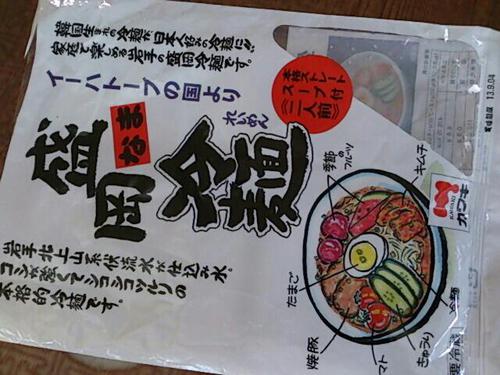 韓国生まれの冷麺が日本人好みの冷麺に!!
家庭で楽しめる岩手の盛岡冷麺です。
イーハトーブの国より
本格ストレート
スープ付
二人前
なま
盛岡
れいめん
冷麺
岩手北上山系伏流水が仕込み水。
コシが強くてシコシコツルリの
本格的冷麺です。
季節のフルーツ
キムチ
たまご
焼豚
トマト
きゅうり
冷麺
カワキ
要冷蔵
賞味期限 13.9.04